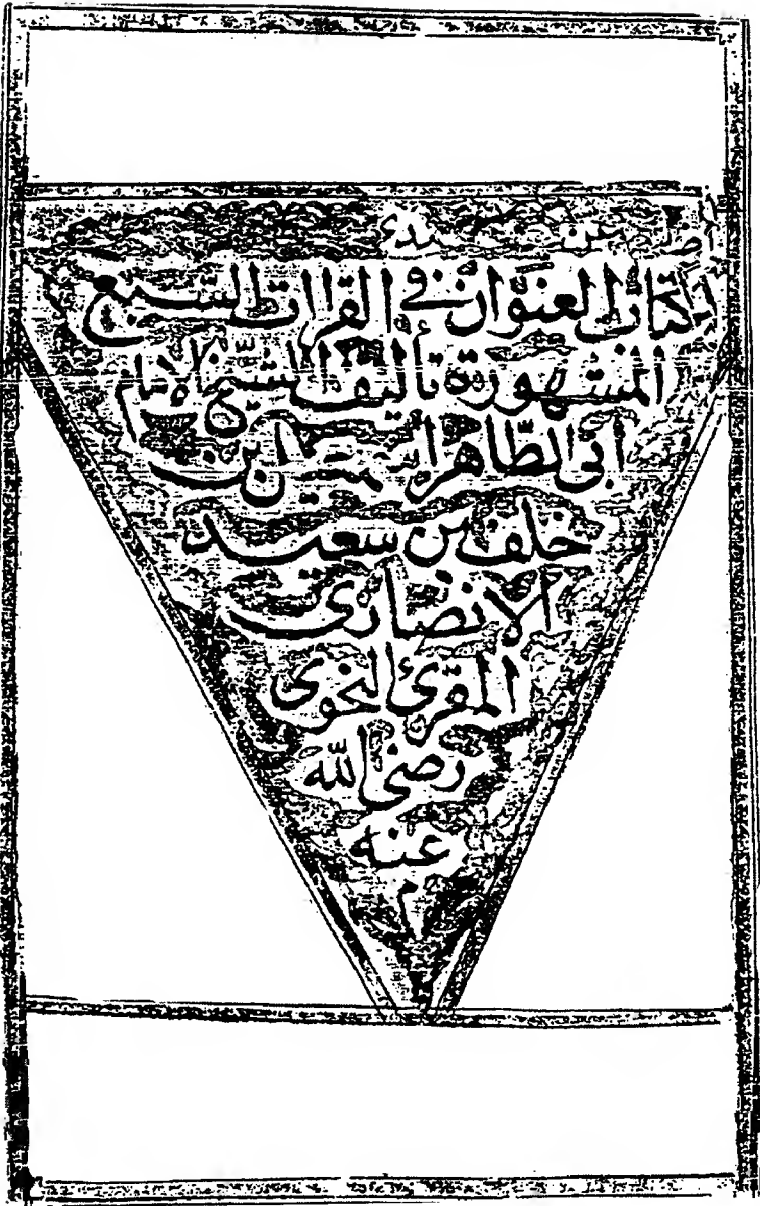 كتاب العنوان في القراات السبع
المشهورة تأليف الشيخ الامام
أبي الطاهر اسمعيل ابن
خلف بن سعيد
الانصاري
المقرئ النحوي
رضي الله
عنه
م